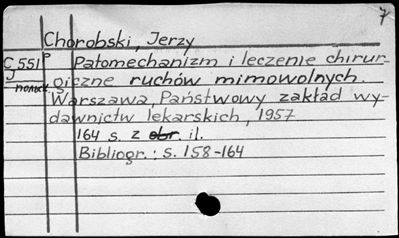 7
Chorobski, Jerzy
C 551 P Patomechanizm i leczenie chirur-
J giczne ruchów mimowolnych.
Warszawa, Państwowy zakład wy-
dawnictw lekarskich, 1957
164 s. z obr. il.
Bibliogr.: s. 158-164